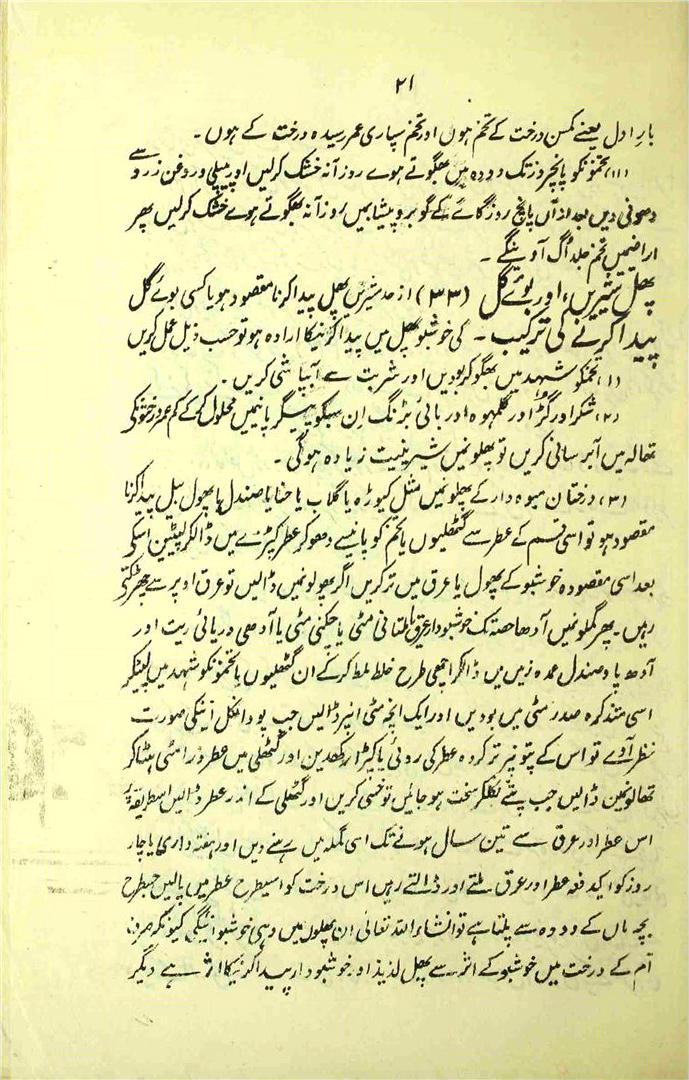 ۲۱
بارِ اول یعنے کمسن درخت کے تخم ہوں اور تخم سپاری عمر رسیدہ درخت کے ہوں۔
(۱۱) تخمونکو پانچروز تک دودہ میں بھگوتے ہوے روز آنہ خشک کرلیں اور پیپلی و روغن زرد سے
دھونی دیں بعد ازآں پانچ روز گاے کے گوبر و پیشابمیں روز آنہ بھگوتے ہوے خشک کرلیں پھر
اراضیمیں تخم جلد اُگ آوینگے۔
پھل شیریں اور بوئے گل (۳۳) از حد شیریں پھل پیدا کرنا مقصود ہو یا کسی بوئے گل
پیدا کرنے کی ترکیب۔ کی خوشبو پھل میں پیدا کرنیکا ارادہ ہو تو حسب ذیل عمل کریں
(۱) تخمکو شہد میں بھگو کر بودیں اور شربت سے آبپاشی کریں۔
(۲) شکر اور گڑ اور گلمہوہ اور بائی بڑنگ اِن سبکو پیسکر پانیمیں محلول کرکے کم عمر درختونکی
تھالہ میں آبرسانی کریں تو پھلونمیں شیرینیت زیادہ ہوگی۔
(۳) درختان میوہ دار کے پھلونمیں مثل کیوڑہ یا گلاب یا حنا یا صندل یا پھول بیل پیدا کرنا
مقصود ہو تو اسی قسم کے عطر سے گٹھلیوں یا تخم کو پانیسے دھو کر عطر کپڑے میں ڈالکر لپیٹیں اسکی
بعد اسی مقصودہ خوشبو کے پھول یا عرق میں تر کریں اگر پھولونمیں ڈالیں تو عرق اوپر سے چھڑکتی
رہیں۔ پھر گملونمیں آدھا حصہ تک خوشبودار عرق یا ملتانی مٹی یا چکنی مٹی یا آدھی دریائی ریت اور
آدھ پاو صندل عمدہ زمیں میں ڈالکر اچھی طرح خلط ملط کرکے ان گٹھلیوں یا تخمونکو شہد میں لپیٹکر
اسی متذکرہ صدر مٹی میں بودیں اور ایک انچہ مٹی انپر ڈالیں جب پودا نکل آنیکی صورت
نظر آوے تو اس کے پتونپر تر کردہ عطر کی روئی یا کپڑا رکھدیں اور گٹھلی میں عطر ذرا مٹی ہٹا کر
تھالونمیں ڈالیں جب پتے نکلکر سخت ہو جائیں تو کریں اور گٹھلی کے اندر عطر ڈالیں اسطریقہ پر
اس عطر اور عرق سے تین سال ہونے تک اسی گملہ میں رہنے دیں اور ہفتہ داری یا چار
روز کو ایکدفعہ عطر اور عرق ملتے اور ڈالتے رہیں اس درخت کو اسیطرح عطر میں پالیں جسطرح
بچہ ماں کے دودہ سے پلتا ہے تو انشاء اللہ تعالیٰ ان پھلوں میں وہی خوشبو آئیگی کیونکہ صرف
آم کے درخت میں خوشبو کے اثر سے پھل لذیذ اور خوشبودار پیدا کرنیکا اثر ہے دیگر